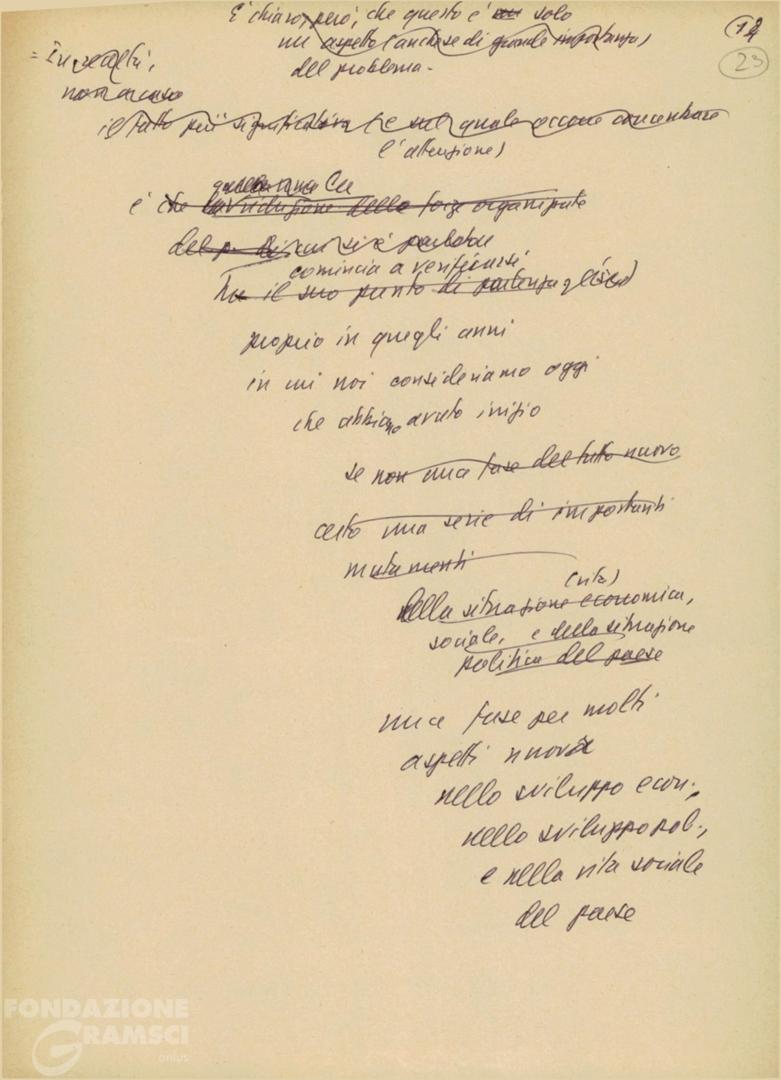 È chiaro, però, che questo è un solo
un aspetto (anche se di grande importanza)
del problema.
12
23
= In realtà,
non a caso
il fatto più significativo (e sul quale occorre concentrare
l'attenzione)
quella ma
è che la riduzione delle forze organizzate
del p. di cui si è parlato
comincia a verificarsi
ha il suo punto di partenza
proprio in quegli anni
in cui noi consideriamo oggi
che abbiano avuto inizio
se non una fase del tutto nuova
certo una serie di importanti
mutamenti
(vita)
della situazione economica,
sociale, e della situazione
politica del paese
una fase per molti
aspetti nuova
nello sviluppo econ.,
nello sviluppo pol.,
e nella vita sociale
del paese
FONDAZIONE
GRAMSCI
onlus